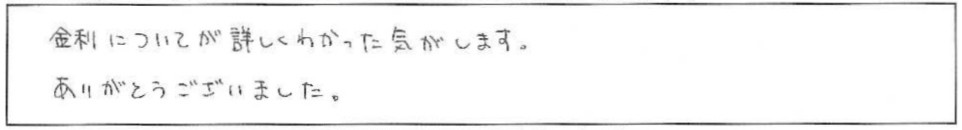 金利についてが詳しくわかった気がします。
ありがとうございました。